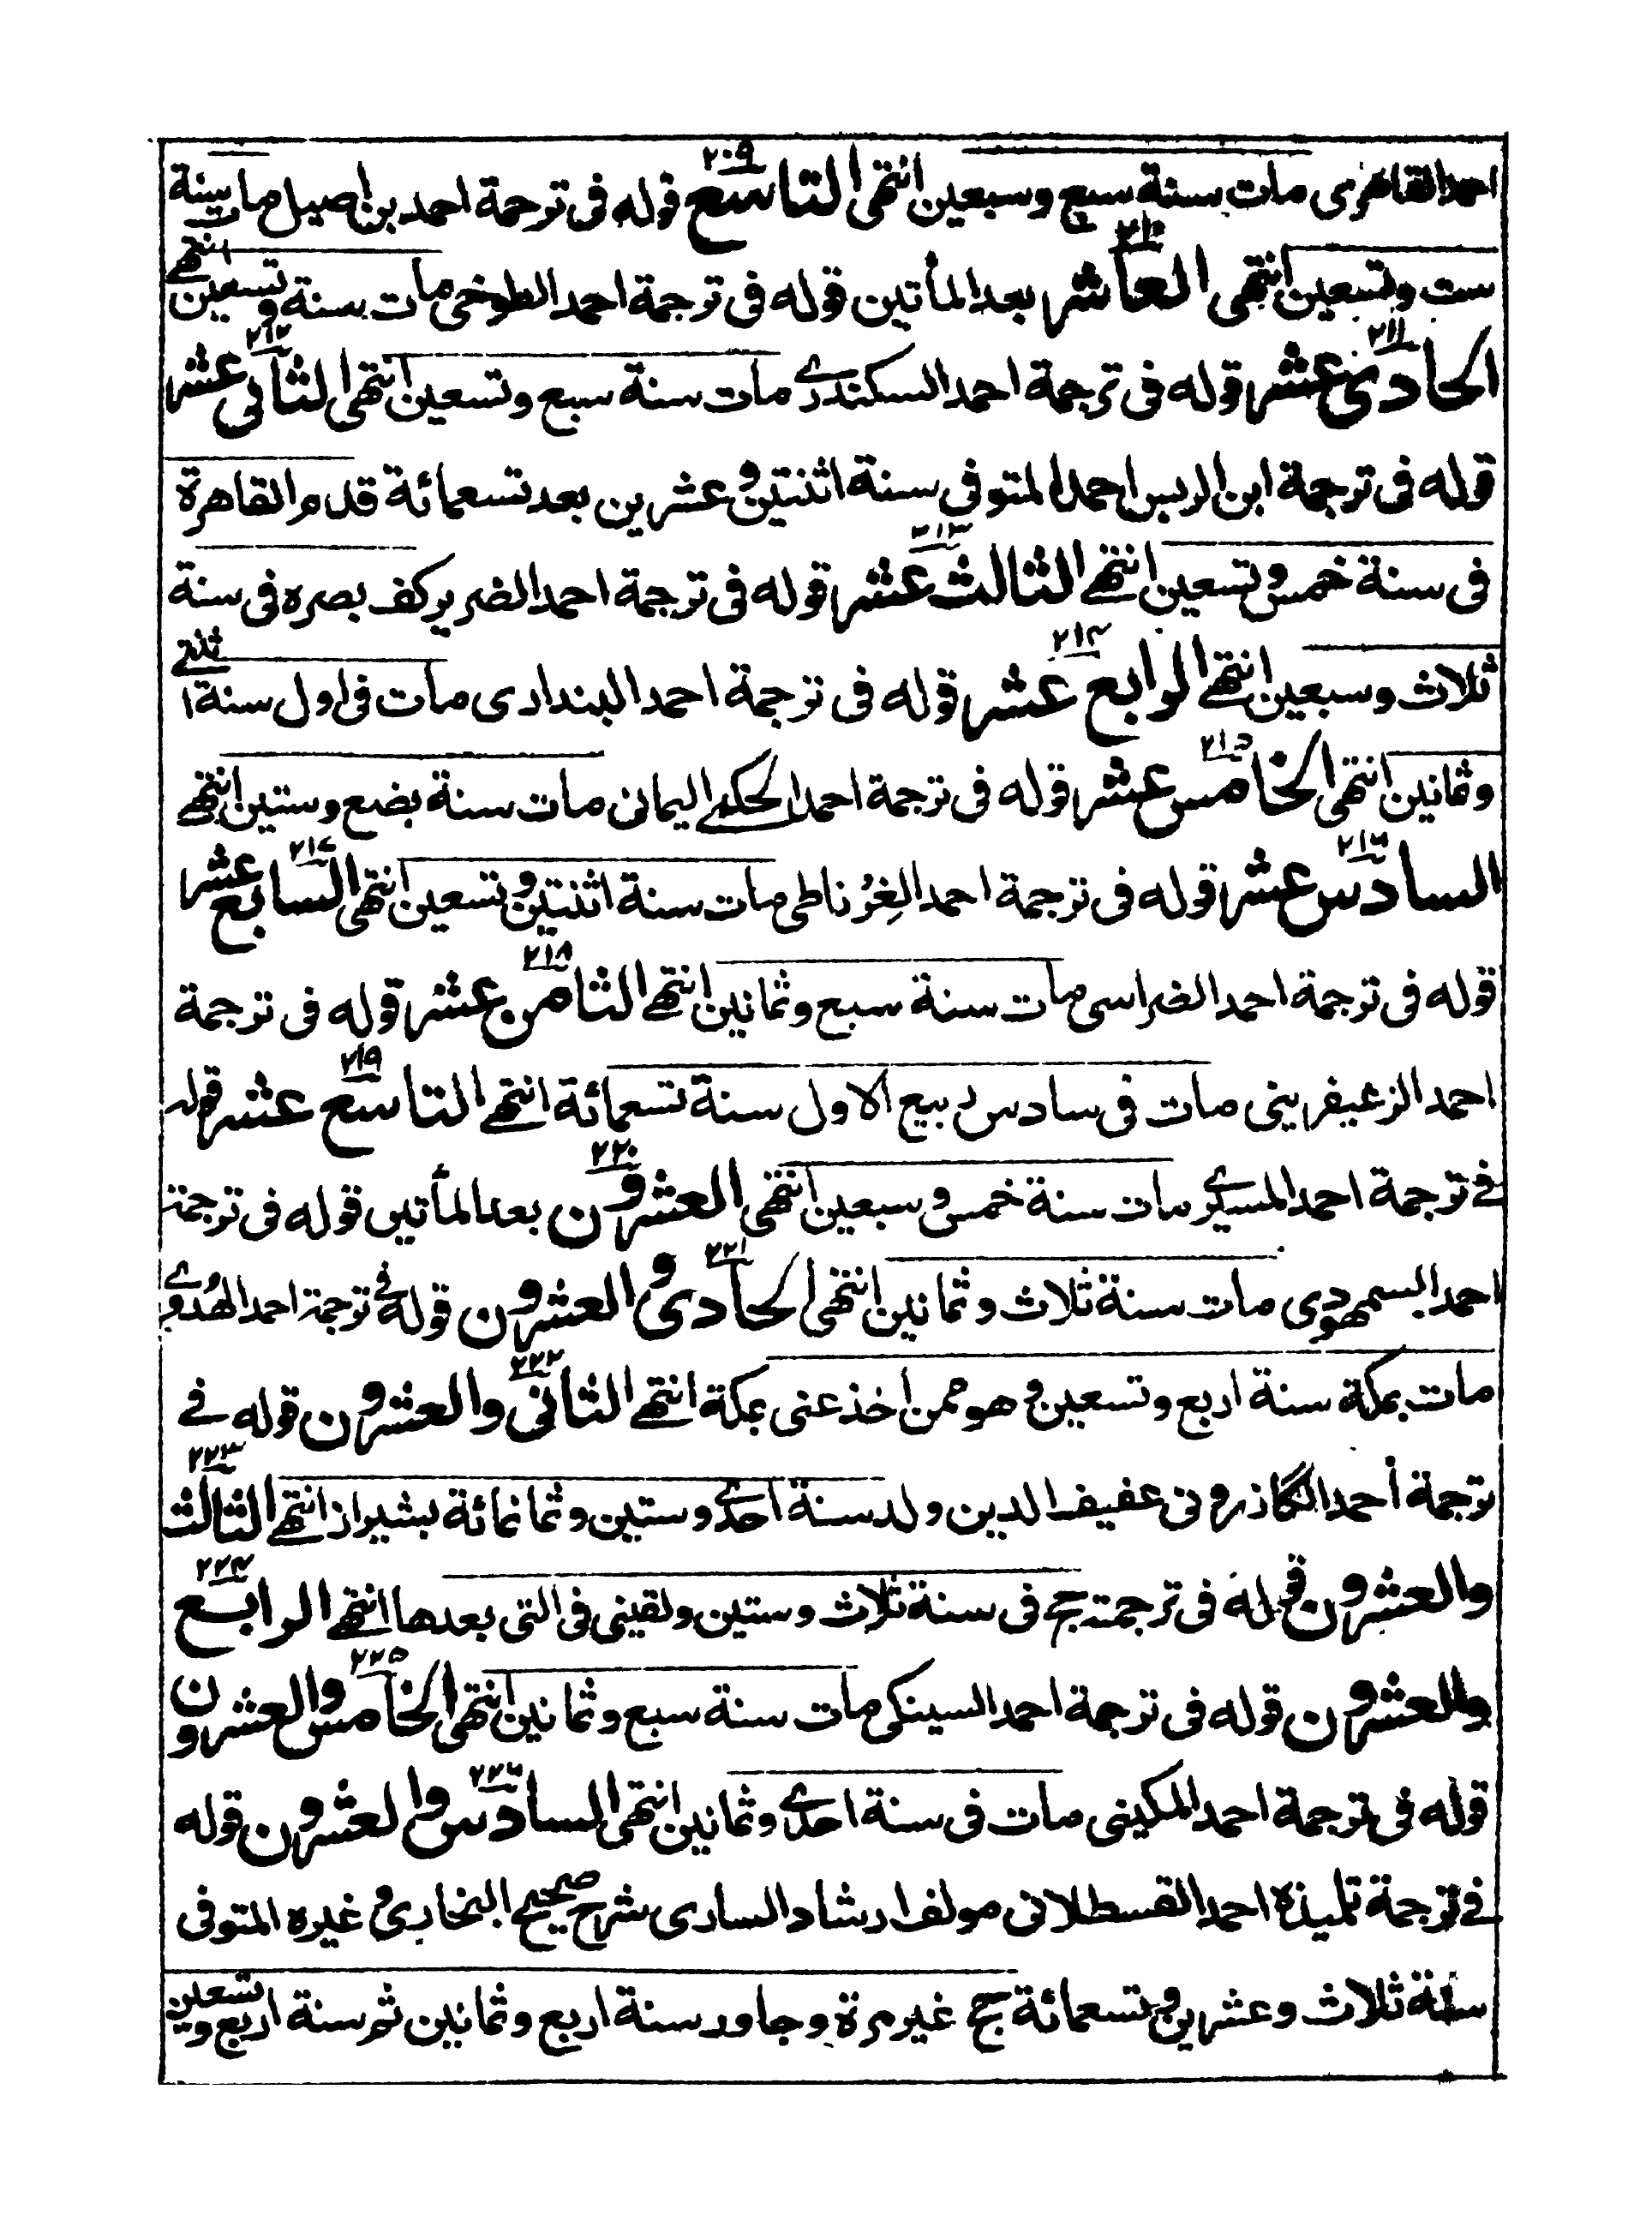 احمد القاهري مات سنة سبع وسبعين انتهى التاسع ٢٠٩ قوله فى ترجمة احمد بن اصيل مات سنة
ست وتسعين انتهى العاشر ٢١٠ بعد المأتين قوله فى ترجمة احمد الطوخى مات سنة وتسعين انتهے
الحادى عشر ٢١١ قوله فى ترجمة احمد السكندرے مات سنة سبع وتسعين انتهى الثانى عشر ٢١٢
قوله فى ترجمة ابن الريس احمد المتوفى سنة اثنتين وعشرين بعد تسعمائة قدم القاهرة
فى سنة خمس وتسعين انتهے الثالث عشر ٢١٣ قوله فى ترجمة احمد الضرير كف بصره فى سنة
ثلاث وسبعين انتهے الرابع عشر ٢١٤ قوله فى ترجمة احمد البندارى مات فى اول سنة اثنتے
وثمانين انتهى الخامس عشر ٢١٥ قوله فى ترجمة احمد الحكمے اليمانى مات سنة بضع وستين انتهے
السادس عشر ٢١٦ قوله فى ترجمة احمد الغرناطى مات سنة اثنتين وتسعين انتهى السابع عشر ٢١٧
قوله فى ترجمة احمد الضراسى مات سنة سبع وثمانين انتهے الثامن عشر ٢١٨ قوله فى ترجمة
احمد الزعيفرينى مات فى سادس ربيع الاول سنة تسعمائة انتهے التاسع عشر ٢١٩ قوله
فے ترجمة احمد المسيرے مات سنة خمس وسبعين انتهى العشرون ٢٢٠ بعد المأتين قوله فى ترجمة
احمد السمهودى مات سنة ثلاث وثمانين انتهى الحادى والعشرون ٢٢١ قوله فے ترجمة احمد الهُدوے
مات بمكة سنة اربع وتسعين وهو ممن أخذ عنى بمكة انتهے الثانى والعشرون ٢٢٢ قوله فے
ترجمة أحمد الكازرونى عفيف الدين ولد سنة احدے وستين وثمانمائة بشيراز انتهے الثالث ٢٢٣
والعشرون قوله فى ترجمته حج فى سنة ثلاث وستين ولقينى فى التى بعدها انتهے الرابع ٢٢٤
والعشرون قوله فى ترجمة احمد السينكى مات سنة سبع وثمانين انتهى الخامس والعشرون ٢٢٥
قوله فى ترجمة احمد المكينى مات فى سنة احدے وثمانين انتهى السادس والعشرون ٢٢٦ قوله
فے ترجمة تلميذه احمد القسطلانى مولف ارشاد السارى شرح صحيح البخارى وغيره المتوفى
سنة ثلاث وعشرين وتسعمائة حج غير مرة وجاور سنة اربع وثمانين ثم سنة اربع وتسعين